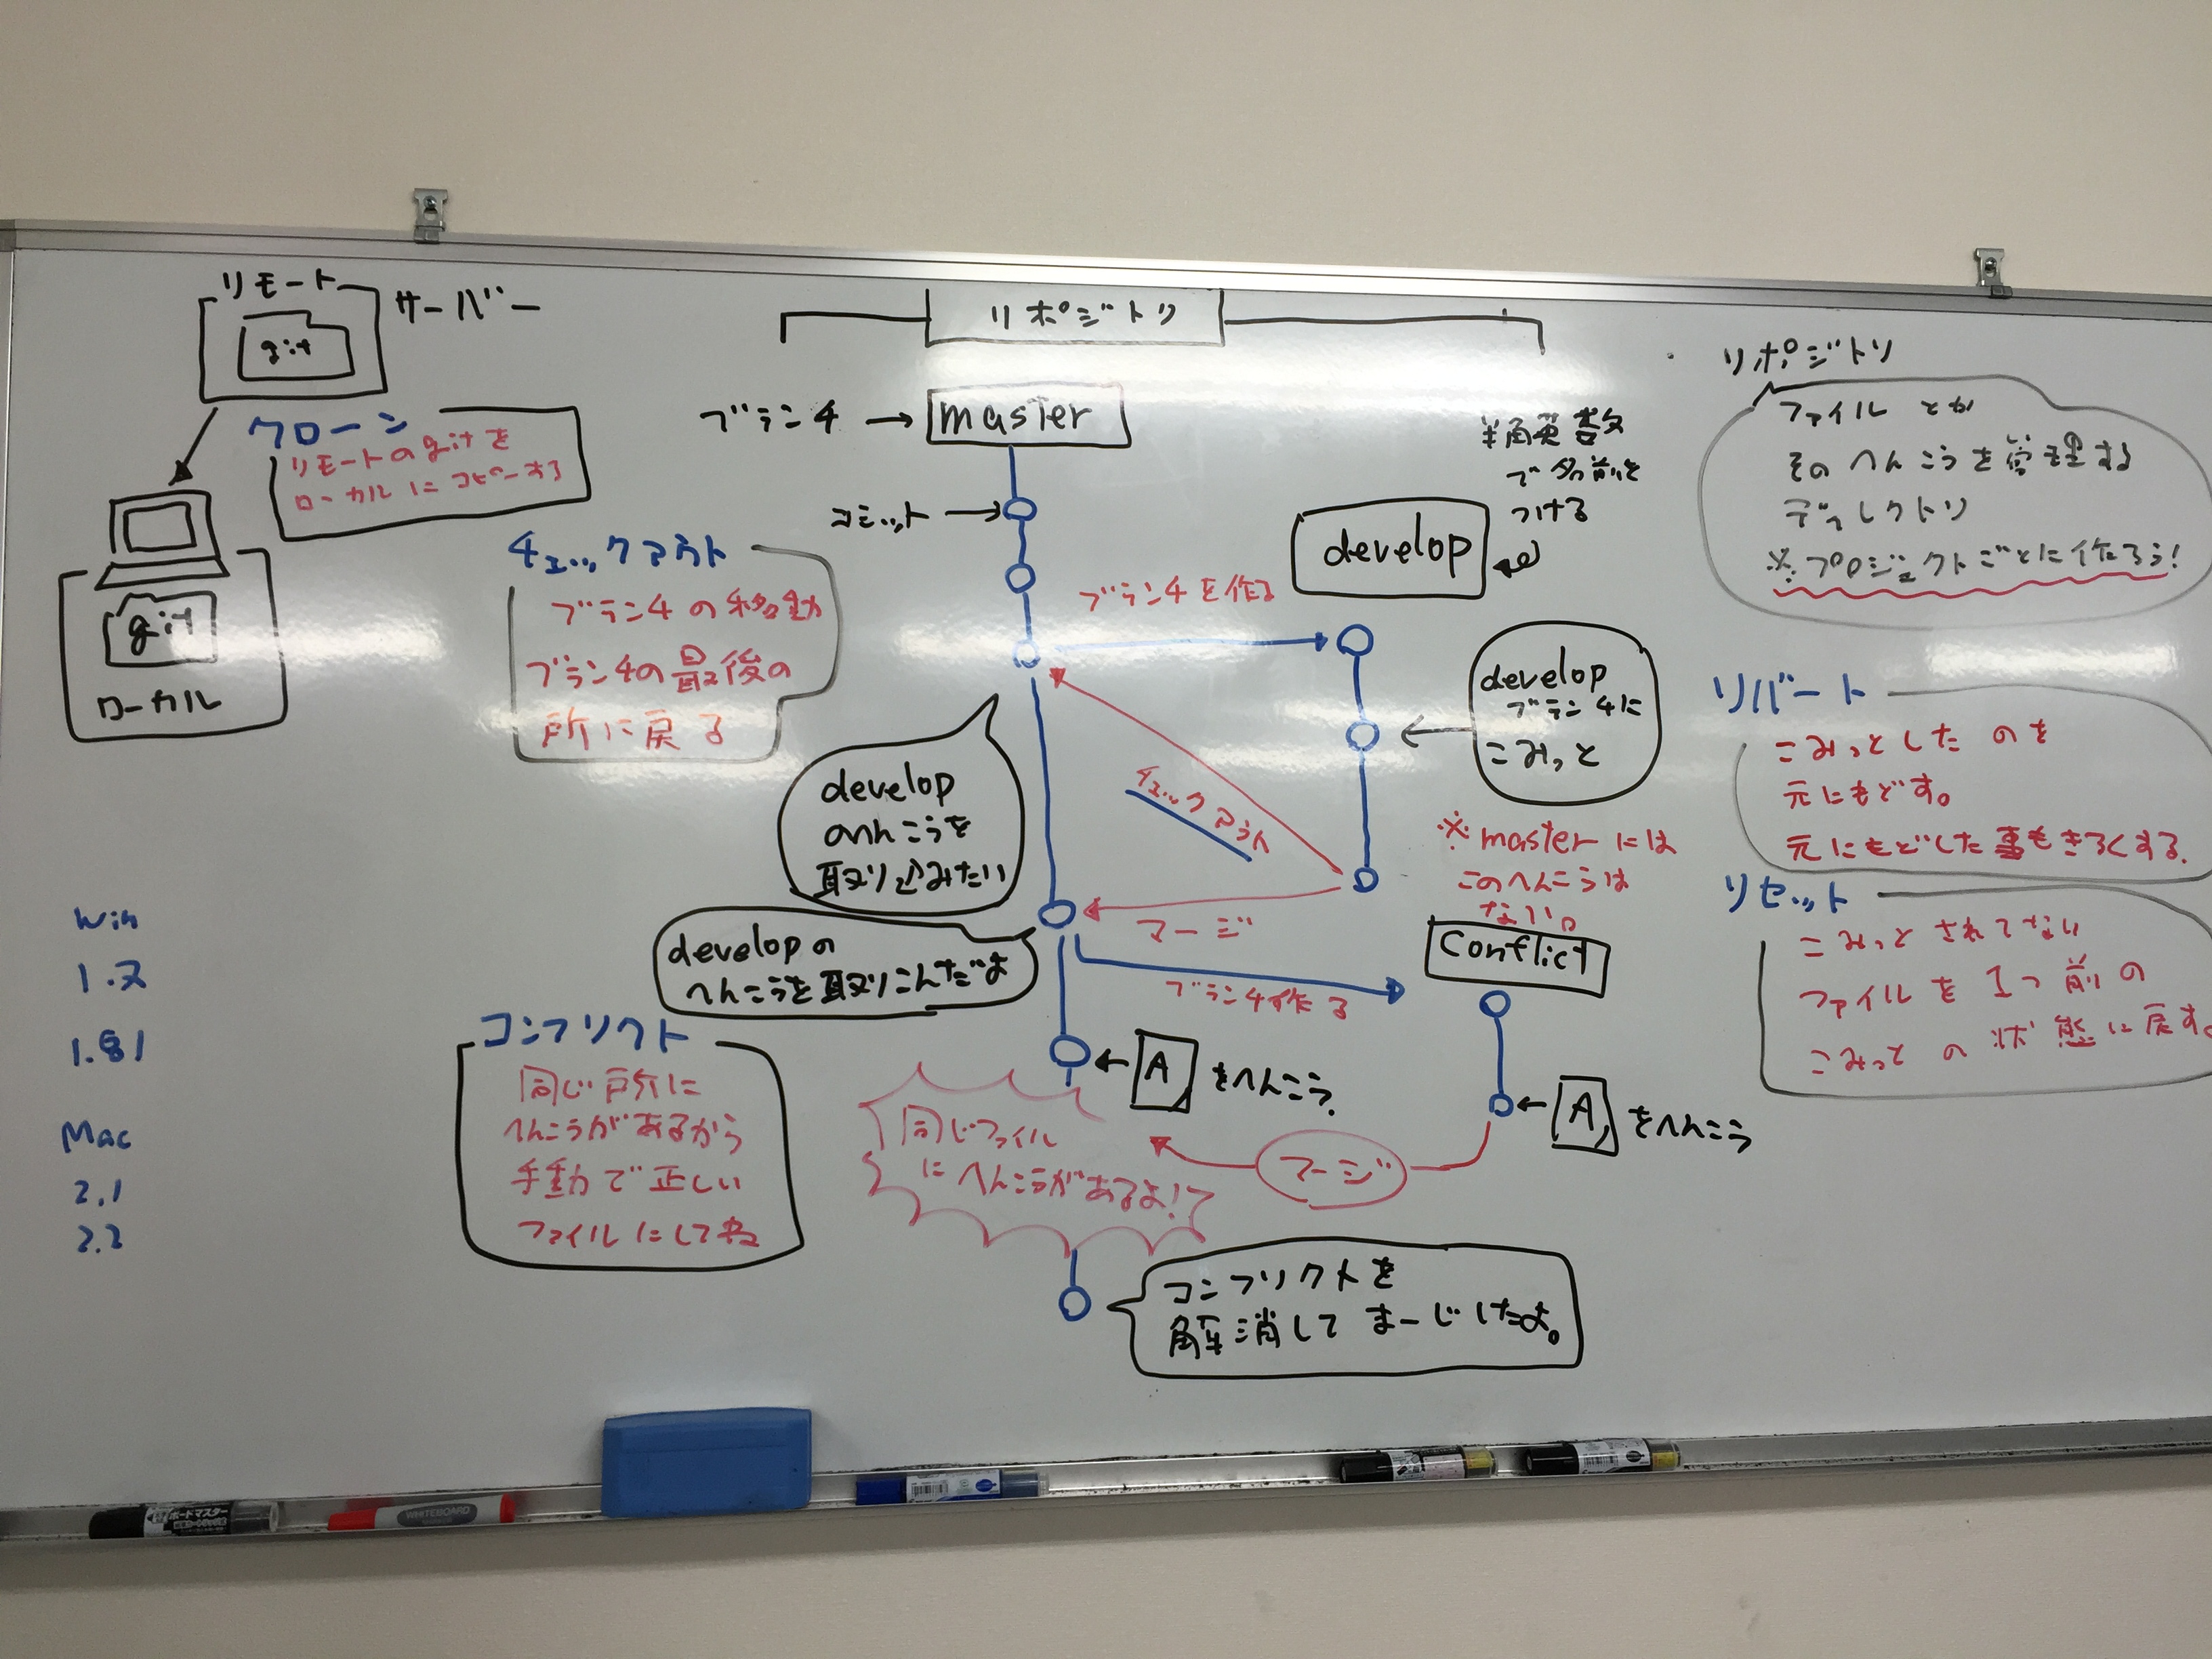 リモート
サーバー
git
クローン
リモートのgitを
ローカルにコピーする
git
ローカル
チェックアウト
ブランチの移動
ブランチの最後の
所に戻る
Win
1.81
Mac
2.1
2.2
コンフリクト
同じ所に
へんこうがあるから
手動で正しい
ファイルにしてね
リポジトリ
ブランチ
master
コミット
半角英数
で名前を
つける
develop
ブランチを作る
develop
ブランチに
こみっと
チェックアウト
develop
のへんこうを
取り込みたい
※masterには
このへんこうは
ない。
マージ
developの
へんこうを取りこんだよ
Conflict
ブランチ作る
A
をへんこう.
A
をへんこう
マージ
同じファイル
にへんこうがあるよ!
コンフリクトを
解消してまーじしたよ。
リポジトリ
ファイルとか
そのへんこうを管理する
ディレクトリ
※プロジェクトごとに作ろう!
リバート
こみっとしたのを
元にもどす。
元にもどした事もきろくする.
リセット
こみっとされてない
ファイルを1つ前の
こみっとの状態に戻す。